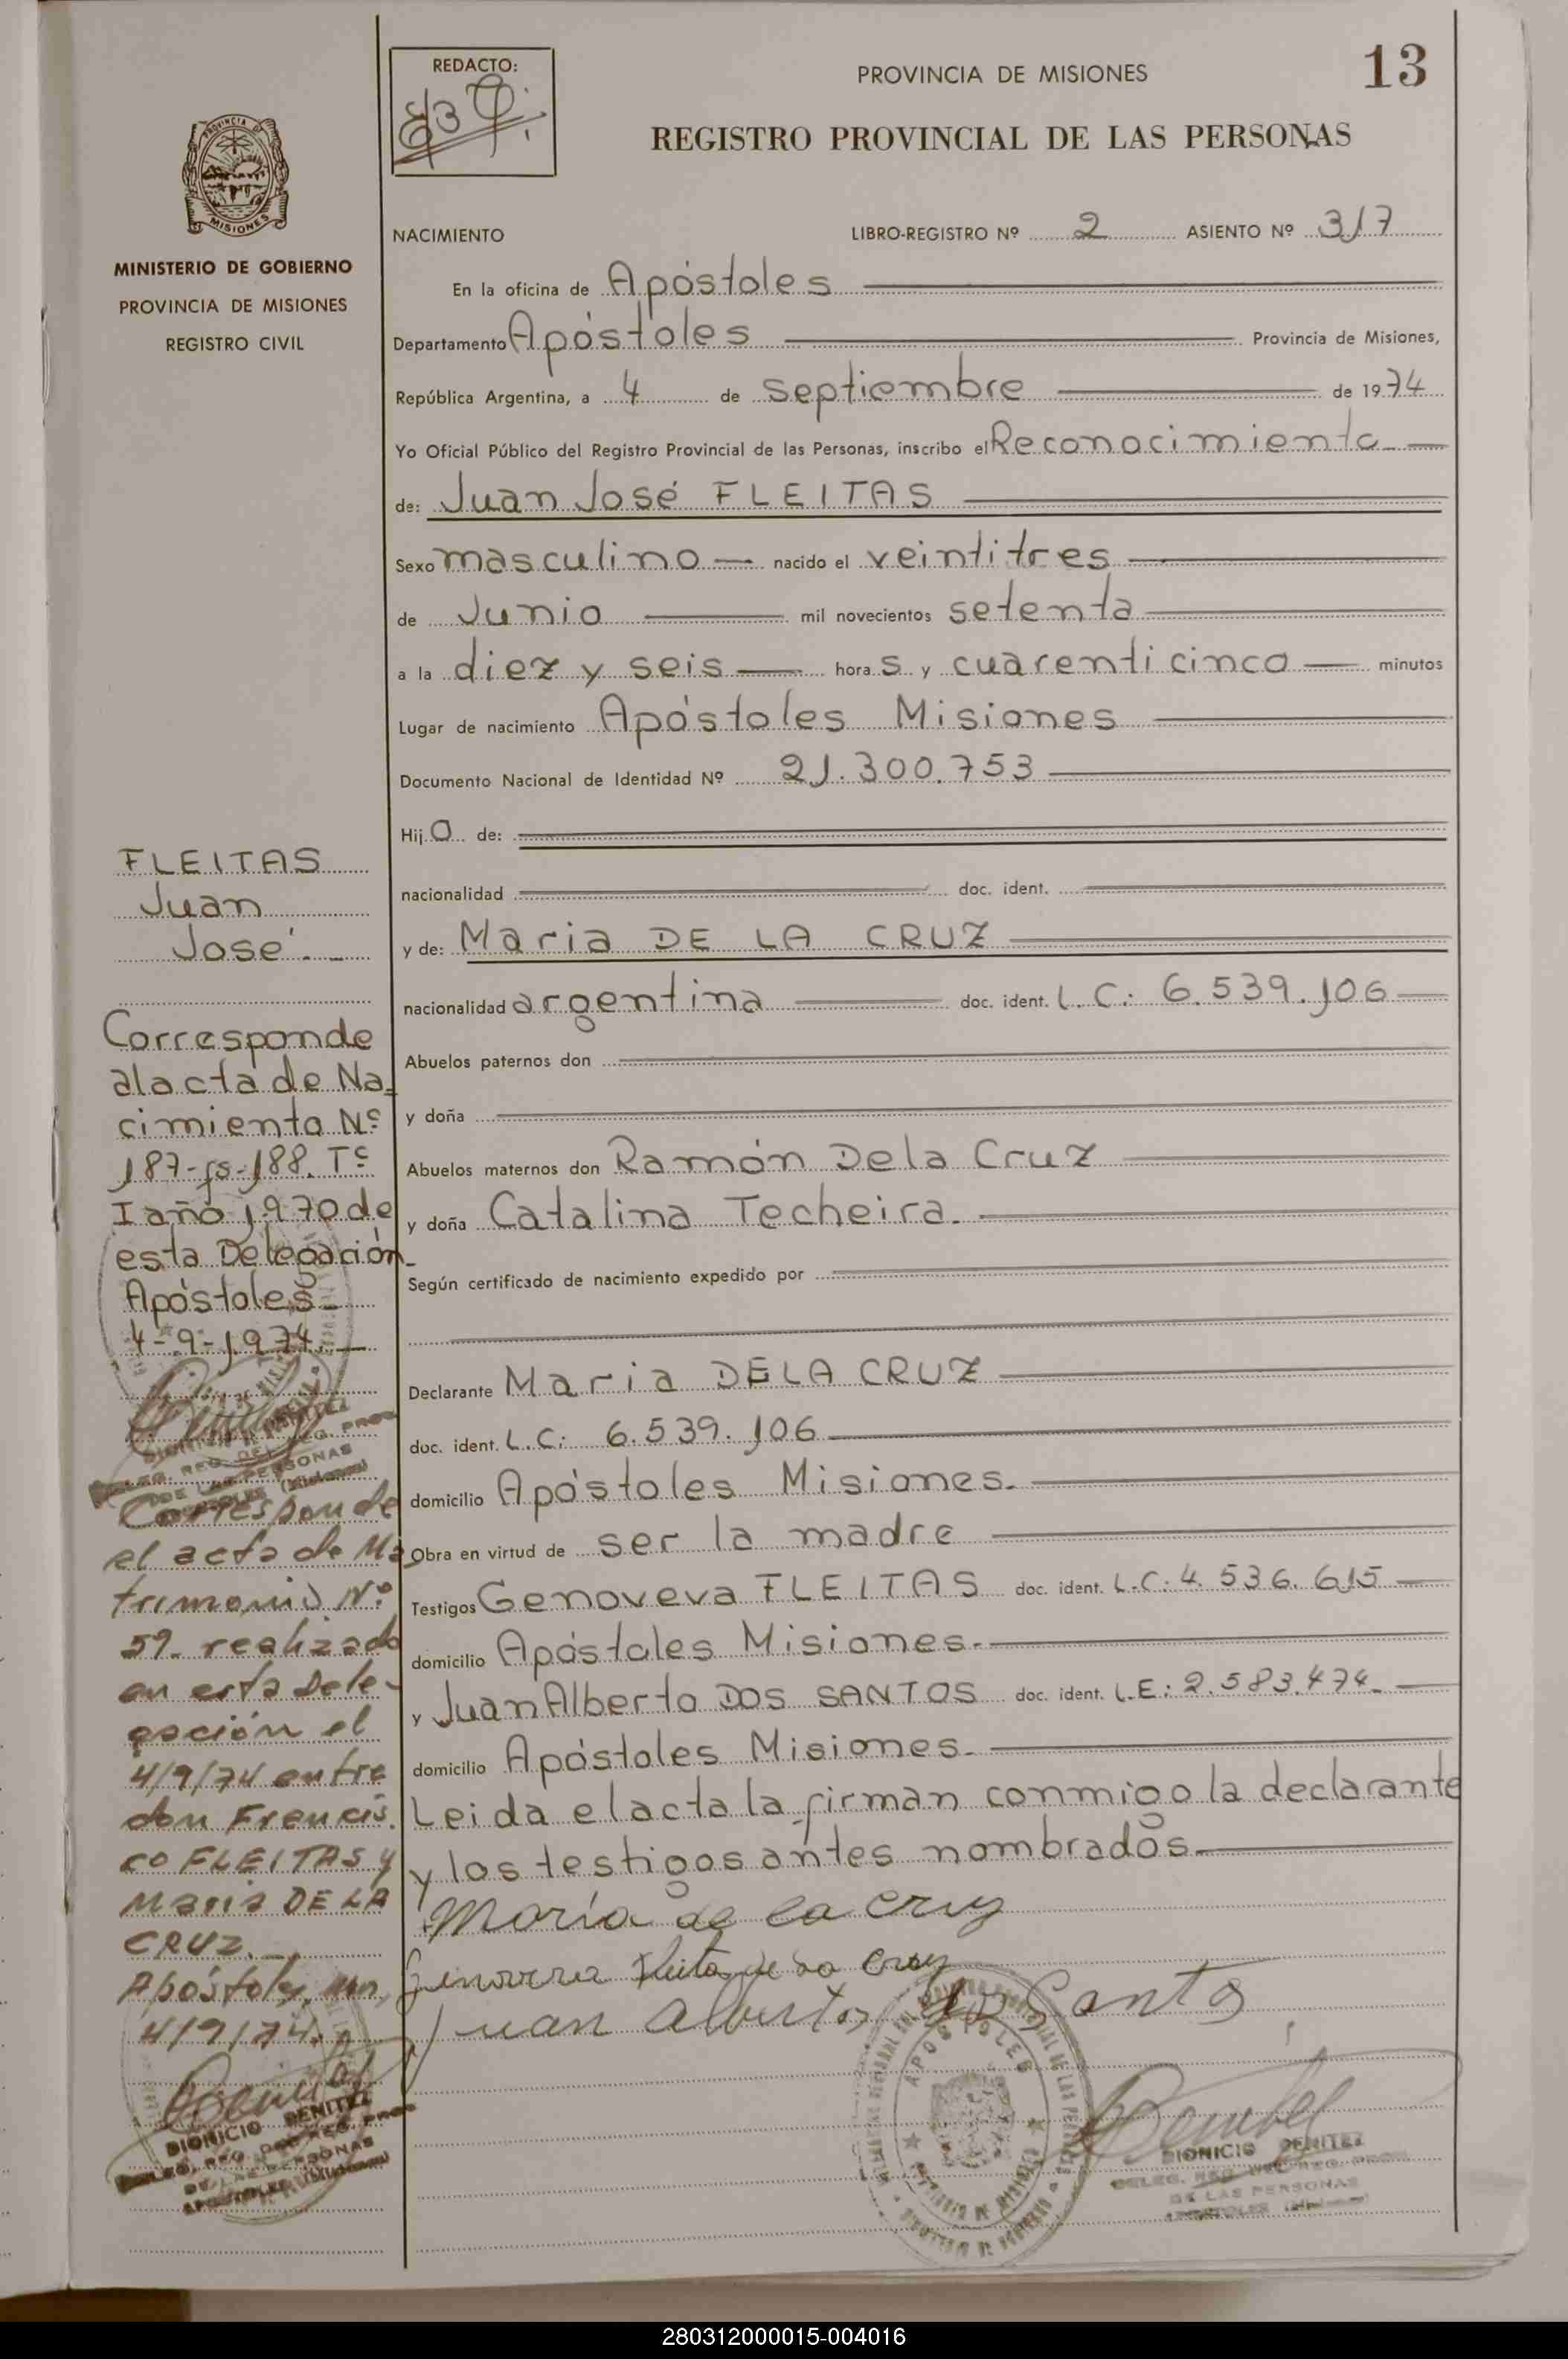 13
REDACTO:
PROVINCIA DE MISIONES
REGISTRO PROVINCIAL DE LAS PERSONAS
PROVINCIA DE
MISIONES
MINISTERIO DE GOBIERNO
PROVINCIA DE MISIONES
REGISTRO CIVIL
NACIMIENTO LIBRO-REGISTRO Nº 2 ASIENTO Nº 317
En la oficina de Apóstoles
Departamento Apóstoles Provincia de Misiones,
República Argentina, a 4 de septiembre de 1974
Yo Oficial Público del Registro Provincial de las Personas, inscribo el Reconocimiento
de: Juan José FLEITAS
Sexo masculino nacido el veintitres
de Junio mil novecientos setenta
a la diez y seis horas y cuarenticinco minutos
Lugar de nacimiento Apóstoles Misiones
Documento Nacional de Identidad Nº 21.300.753
Hijo de:
nacionalidad doc. ident.
y de: Maria DE LA CRUZ
nacionalidad argentina doc. ident. L.C: 6.539.106
Abuelos paternos don
y doña
Abuelos maternos don Ramón De la Cruz
y doña Catalina Techeira.
Según certificado de nacimiento expedido por
Declarante Maria DE LA CRUZ
doc. ident. L.C: 6.539.106
domicilio Apóstoles Misiones.
Obra en virtud de ser la madre
Testigos Genoveva FLEITAS doc. ident. L.C: 4.536.615
domicilio Apóstoles Misiones.
y Juan Alberto DOS SANTOS doc. ident. L.E: 2.583.474.
domicilio Apóstoles Misiones.
Leida el acta la firman conmigo la declarante
y los testigos antes nombrados.
María de la Cruz
Juan Alberto dos Santos
FLEITAS
Juan
José.
Corresponde
al acta de Na
cimiento Nº
187-fs-188. Tº
I año 1970 de
esta Delegación
Apóstoles
4-9-1974.
Corresponde
el acta de Ma
trimonio Nº
59 realizado
en esta Dele-
gación el
4/9/74 entre
don Francis.
co FLEITAS y
Maria DE LA
CRUZ.
Apóstoles, Mnes,
4/9/74.
DIONICIO BENITEZ
DELEG. REG. DEL REG. PROV.
DE LAS PERSONAS
APOSTOLES (Misiones)
APOSTOLES
DIONICIO BENITEZ
DELEG. REG. DEL REG. PROV.
DE LAS PERSONAS
APOSTOLES (Misiones)
280312000015-004016